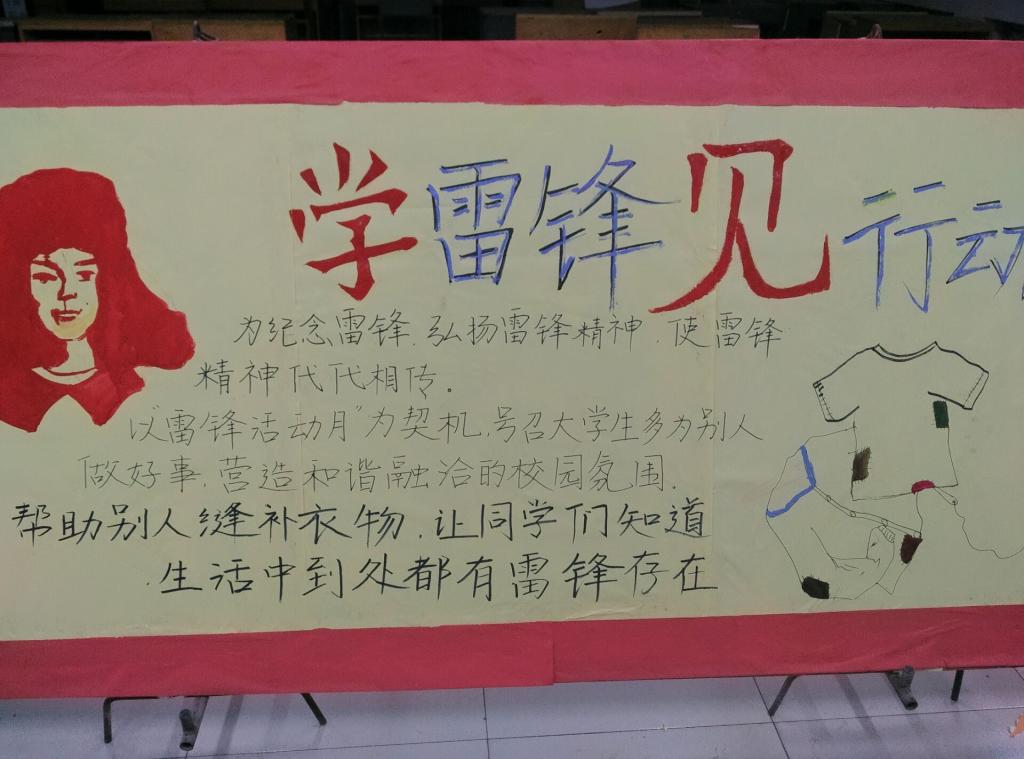 学雷锋见行动
为纪念雷锋.弘扬雷锋精神.使雷锋
精神代代相传。
以“雷锋活动月”为契机.号召大学生多为别人
做好事.营造和谐融洽的校园氛围.
帮助别人缝补衣物.让同学们知道
.生活中到处都有雷锋存在